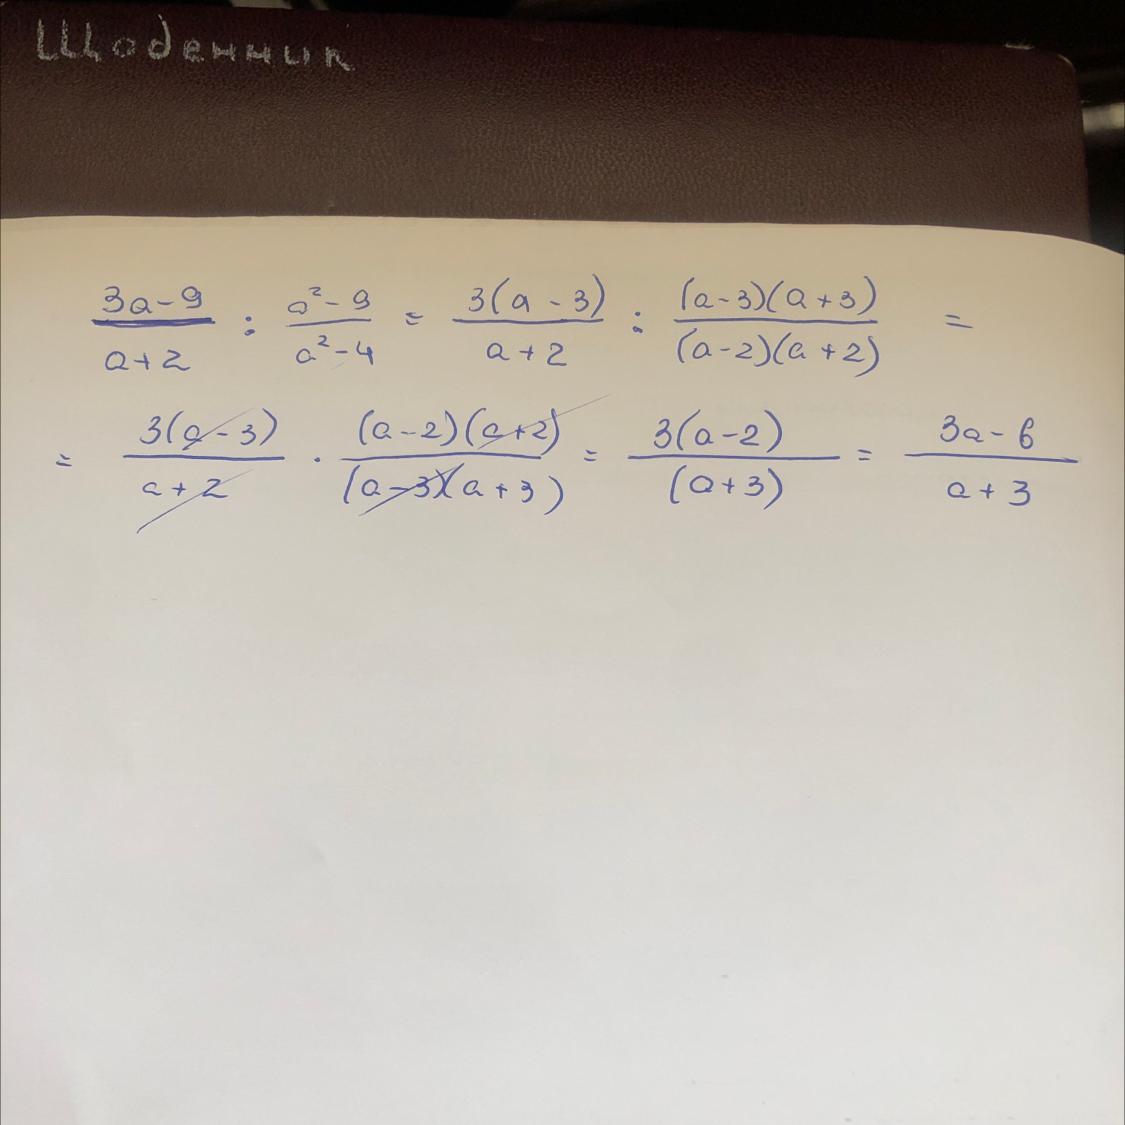 Щоденник
(3a-9)/(a+2) : (a²-9)/(a²-4) = 3(a-3)/(a+2) : (a-3)(a+3)/(a-2)(a+2) =
= 3(a-3)/(a+2) · (a-2)(a+2)/(a-3)(a+3) = 3(a-2)/(a+3) = (3a-6)/(a+3)